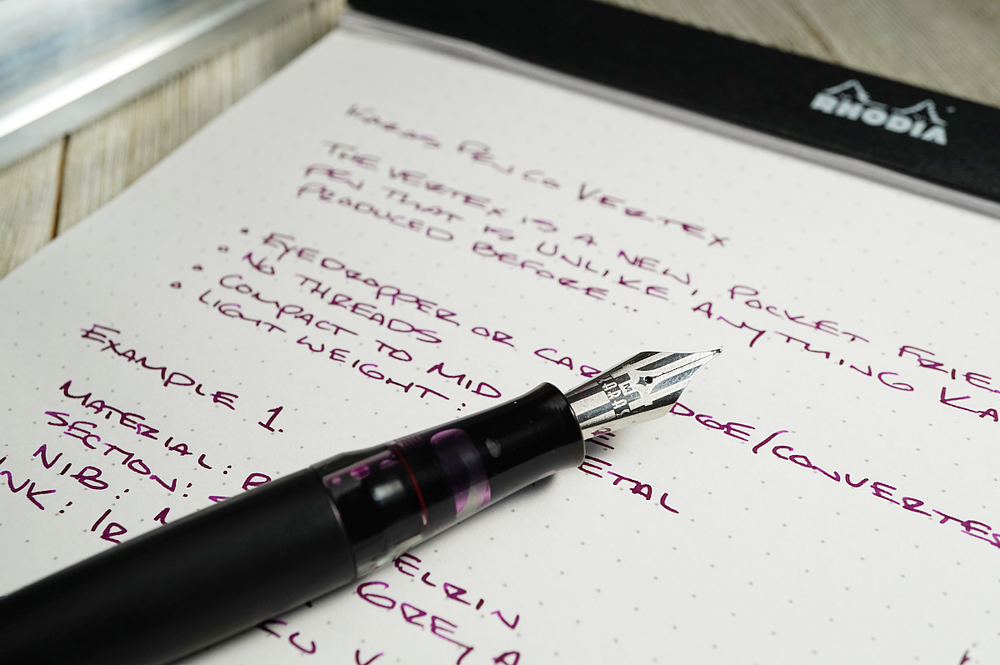 RHODIA
KARAS PEN CO VERTEX
THE VERTEX IS A NEW, POCKET FRIE
PEN THAT IS UNLIKE ANYTHING KA
PRODUCED BEFORE...
• EYEDROPPER OR CAR DGE/CONVERTE
• NO THREADS
• COMPACT TO MID
• LIGHT WEIGHT: ETAL
EXAMPLE 1.
MATERIAL: ELRIN
SECTION: GREY
NIB: N
INK: IR
KARAS